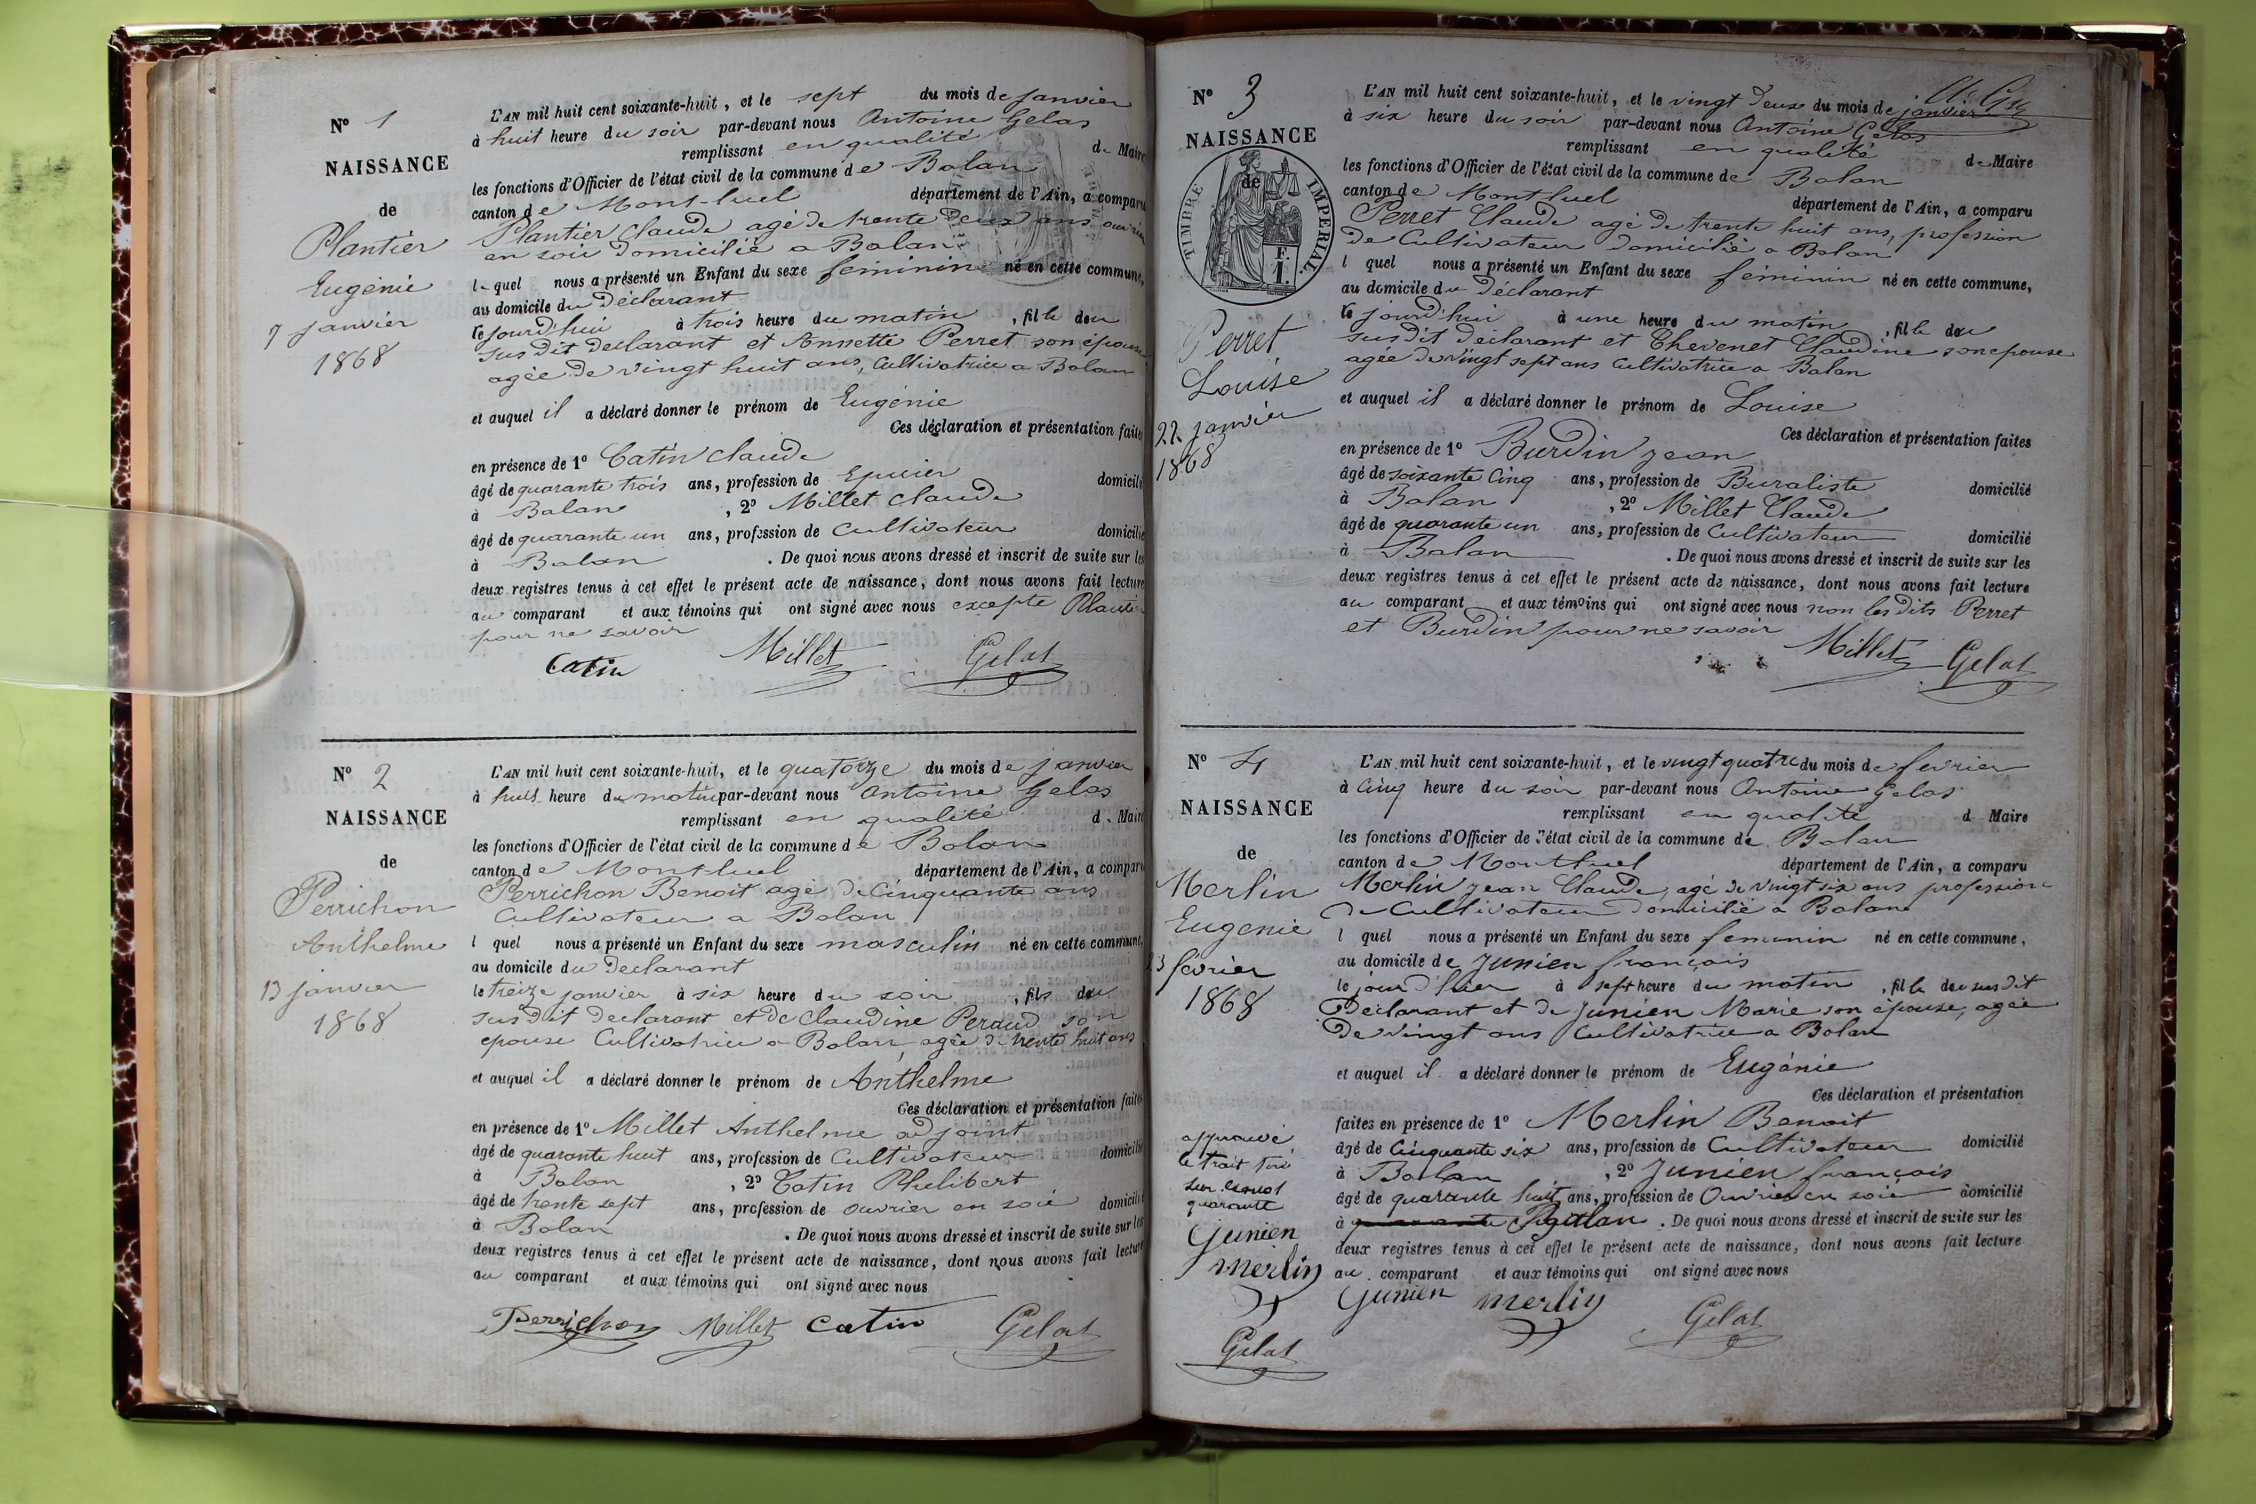 N° 1
NAISSANCE
de
Plantier
Eugénie
7 janvier
1868
L'AN mil huit cent soixante-huit, et le sept du mois de janvier
à huit heure du soir par-devant nous Antoine Gelas
remplissant en qualité de Maire
les fonctions d'Officier de l'état civil de la commune de Balan
canton de Montluel département de l'Ain, a comparu
Plantier Claude agé de trente deux ans ouvrier
en soie domicilié a Balan
le quel nous a présenté un Enfant du sexe féminin né en cette commune,
au domicile du Déclarant
le jourd'hui à trois heure du matin, fille deu
sus dit declarant et Annette Perret son épouse
agée de vingt huit ans, Cultivatrice a Balan
et auquel il a déclaré donner le prénom de Eugénie
Ces déclaration et présentation faites
en présence de 1° Catin Claude
âgé de quarante trois ans, profession de Epicier domicilié
à Balan, 2° Millet Claude
âgé de quarante un ans, profession de Cultivateur domicilié
à Balan. De quoi nous avons dressé et inscrit de suite sur les
deux registres tenus à cet effet le présent acte de naissance, dont nous avons fait lecture
au comparant et aux témoins qui ont signé avec nous excepte Plantier
pour ne savoir
Catin Millet Gelas
N° 2
NAISSANCE
de
Perrichon
Anthelme
13 janvier
1868
L'AN mil huit cent soixante-huit, et le quatorze du mois de janvier
à huit heure du matin par-devant nous Antoine Gelas
remplissant en qualité de Maire
les fonctions d'Officier de l'état civil de la commune de Balan
canton de Montluel département de l'Ain, a comparu
Perrichon Benoit agé de Cinquante ans
Cultivateur a Balan
l quel nous a présenté un Enfant du sexe masculin né en cette commune,
au domicile du Declarant
le treize janvier à six heure du soir, fils deu
sus dit declarant et de Claudine Peraud son
epouse Cultivatrice a Balan agée de trente huit ans
et auquel il a déclaré donner le prénom de Anthelme
Ces déclaration et présentation faites
en présence de 1° Millet Anthelme adjoint
âgé de quarante huit ans, profession de Cultivateur domicilié
à Balan, 2° Catin Philibert
âgé de trente sept ans, profession de ouvrier en soie domicilié
à Balan. De quoi nous avons dressé et inscrit de suite sur les
deux registres tenus à cet effet le présent acte de naissance, dont nous avons fait lecture
au comparant et aux témoins qui ont signé avec nous
Perrichon Millet Catin Gelas
N° 3
NAISSANCE
de
TIMBRE IMPERIAL.
F.
1.
Perret
Louise
22 janvier
1868
L'AN mil huit cent soixante-huit, et le vingt deux du mois de janvier
à six heure du soir par-devant nous Antoine Gelas
remplissant en qualité de Maire
les fonctions d'Officier de l'état civil de la commune de Balan
canton de Montluel département de l'Ain, a comparu
Perret Claude agé de trente huit ans, profession
de Cultivateur domicilié a Balan
l quel nous a présenté un Enfant du sexe féminin né en cette commune,
au domicile du Déclarant
le jourd'hui à une heure du matin, fille deu
susdit déclarant et Thevenet Claudine son epouse
agée de vingt sept ans Cultivatrice a Balan
et auquel il a déclaré donner le prénom de Louise
Ces déclaration et présentation faites
en présence de 1° Burdin Jean
âgé de soixante Cinq ans, profession de Buraliste domicilié
à Balan, 2° Millet Claude
âgé de quarante un ans, profession de Cultivateur domicilié
à Balan. De quoi nous avons dressé et inscrit de suite sur les
deux registres tenus à cet effet le présent acte de naissance, dont nous avons fait lecture
au comparant et aux témoins qui ont signé avec nous non les dits Perret
et Burdin pour ne savoir
Millet Gelas
N° 4
NAISSANCE
de
Merlin
Eugenie
3 février
1868
L'AN mil huit cent soixante-huit, et le vingt quatre du mois de fevrier
à Cinq heure du soir par-devant nous Antoine Gelas
remplissant en qualité d Maire
les fonctions d'Officier de l'état civil de la commune de Balan
canton de Montluel département de l'Ain, a comparu
Merlin Jean Claude, agé de vingt six ans profession
de Cultivateur domicilié a Balan
l quel nous a présenté un Enfant du sexe feminin né en cette commune,
au domicile de Junien françois
le jour d'hier à sept heure du matin, fille deu sus dit
Déclarant et de Junien Marie son épouse, agée
de vingt ans Cultivatrice a Balan
et auquel il a déclaré donner le prénom de Eugénie
Ces déclaration et présentation
faites en présence de 1° Merlin Benoit
âgé de Cinquante six ans, profession de Cultivateur domicilié
à Balan, 2° Junien françois
âgé de quarante huit ans, profession de Ouvrier en soie domicilié
à quarante Balan. De quoi nous avons dressé et inscrit de suite sur les
deux registres tenus à cet effet le présent acte de naissance, dont nous avons fait lecture
au comparant et aux témoins qui ont signé avec nous
Junien Merlin Gelas
approuvé
le trait tiré
sur le mot
quarante
Junien
Merlin
Gelas